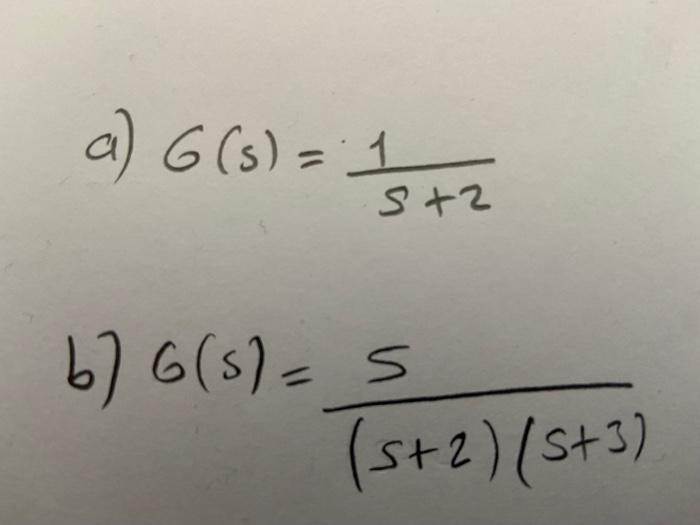 a) G(s) = 1
s+2
b) G(s) = s
(s+2)(s+3)